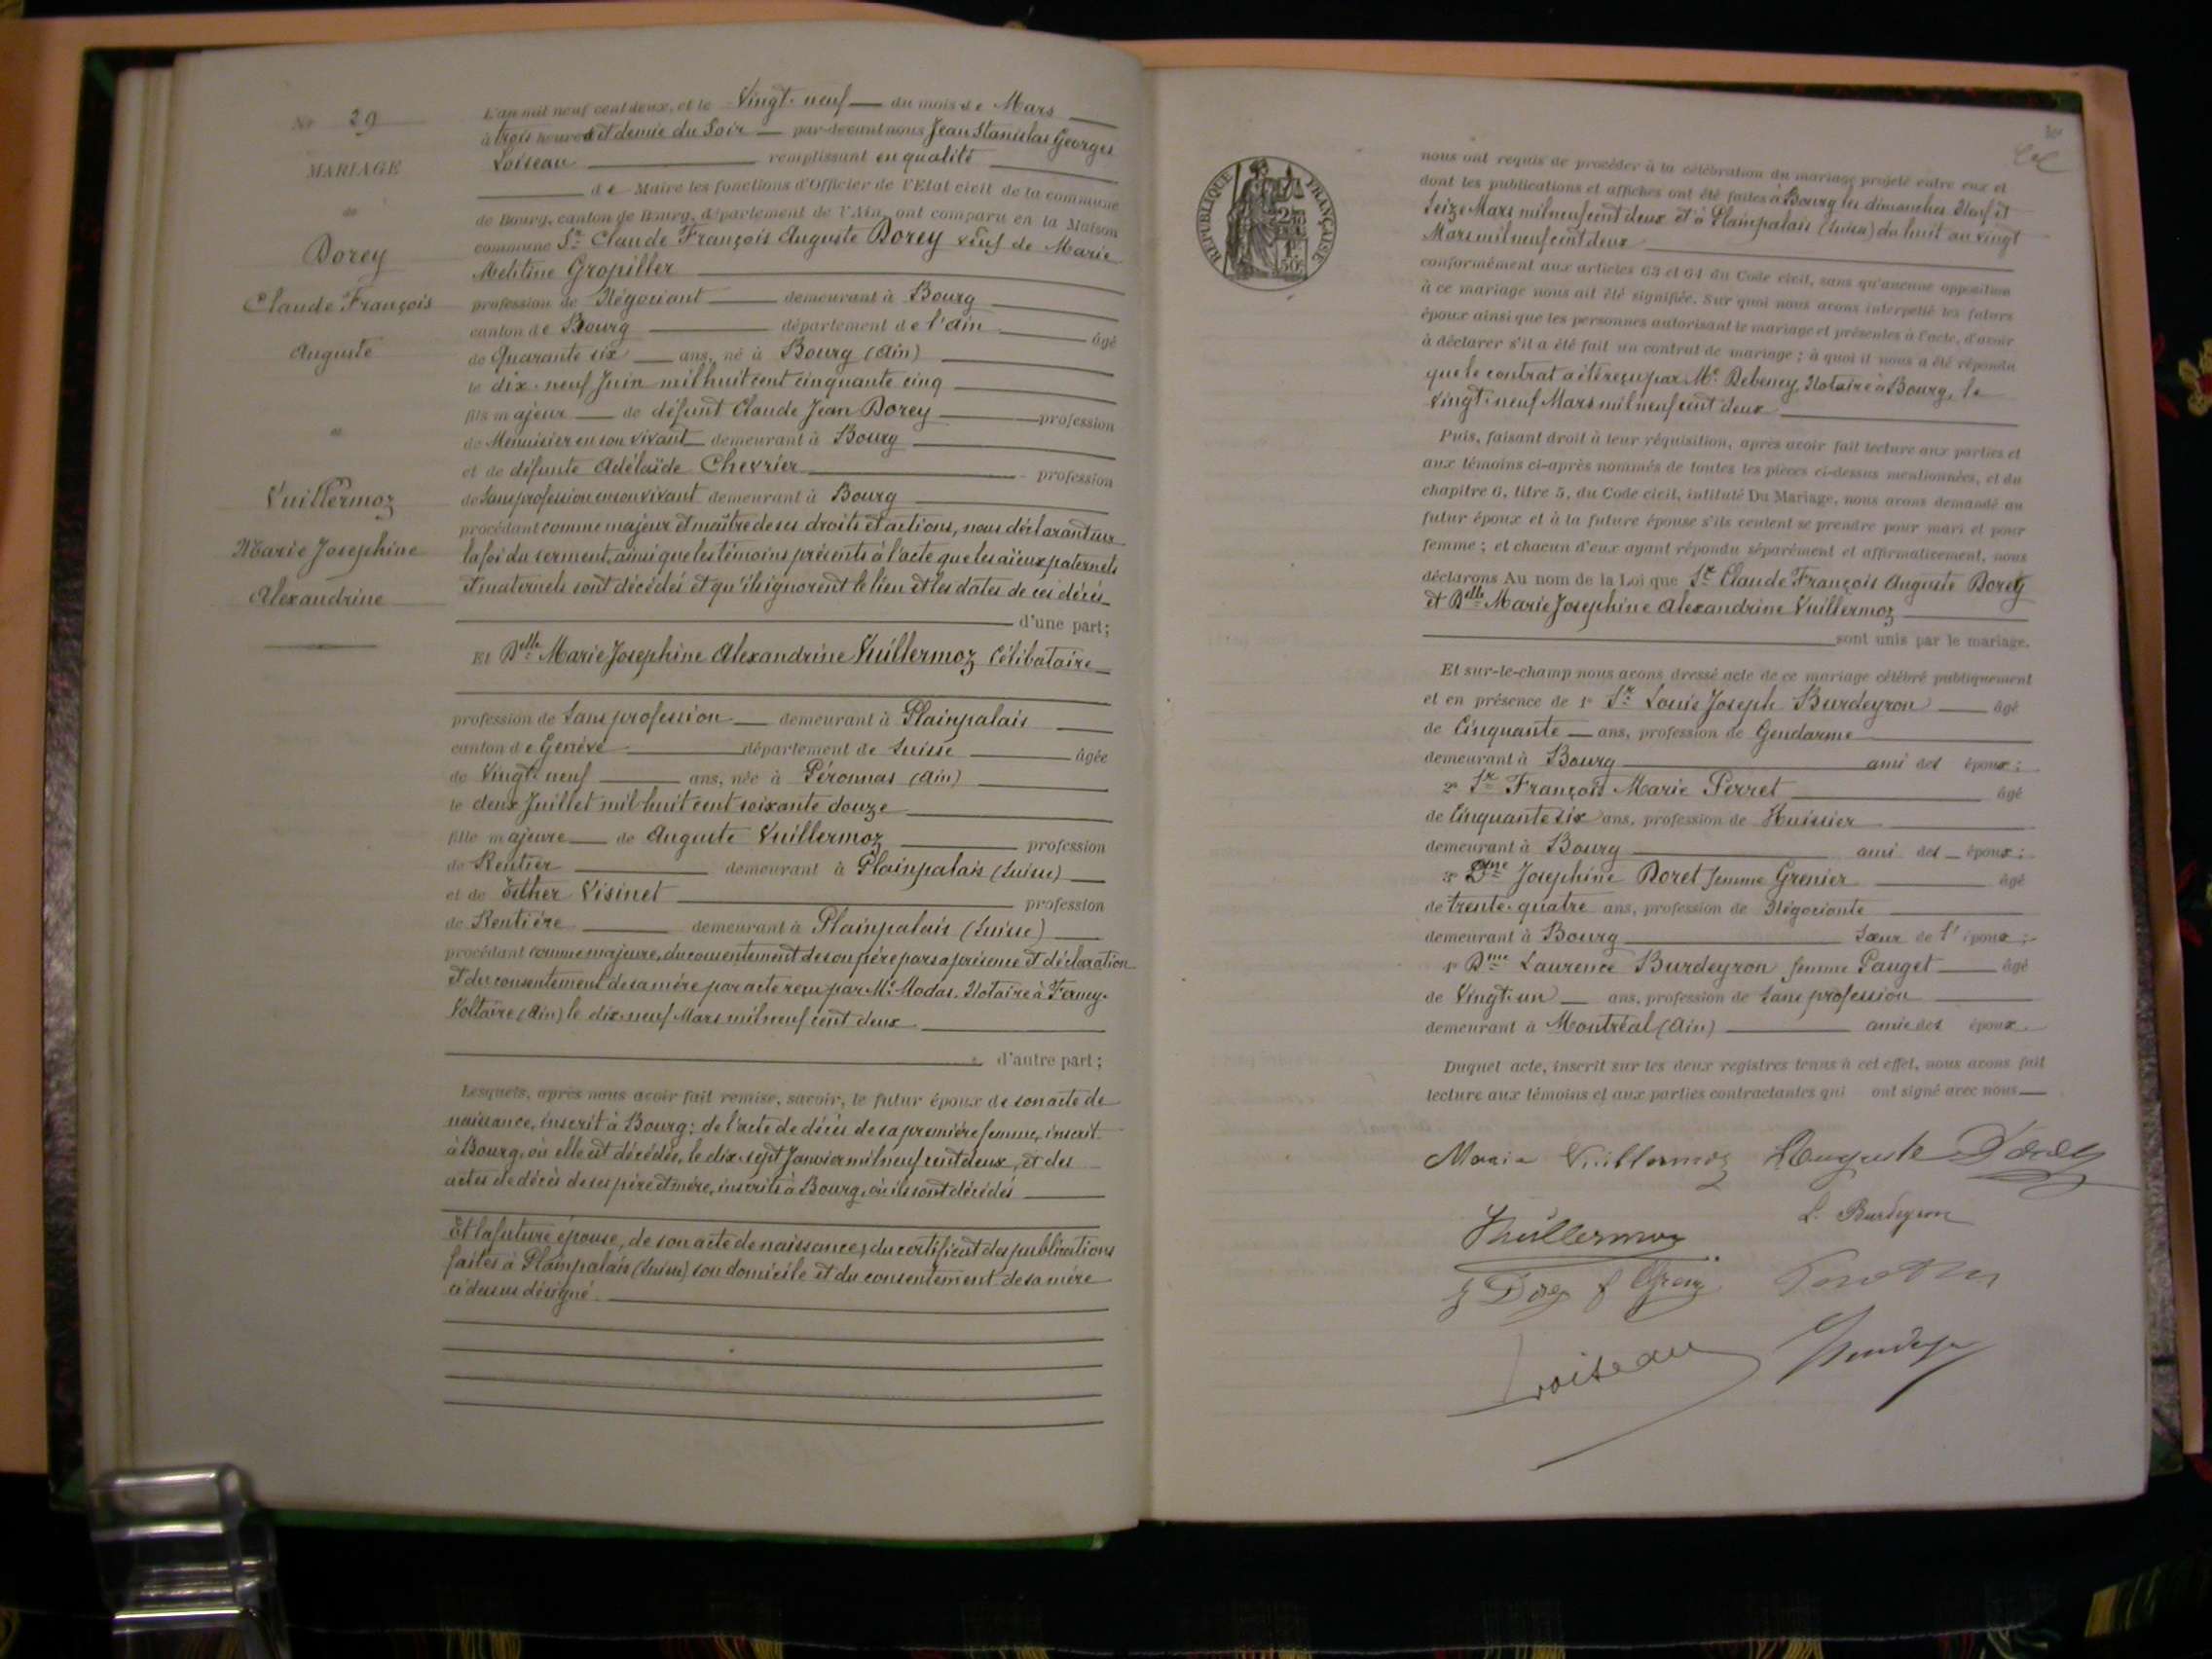 No 29
MARIAGE
de
Dorey
Claude François
Auguste
et
Vuillermoz
Marie Josephine
Alexandrine
L'an mil neuf cent deux, et le Vingt-neuf du mois de Mars
à trois heures et demie du Soir par-devant nous Jean Stanislas Georges
Loiseau remplissant en qualité
de Maire les fonctions d'Officier de l'Etat civil de la commune
de Bourg, canton de Bourg, département de l'Ain, ont comparu en la Maison
commune Sr Claude François Auguste Dorey veuf de Marie
Melitine Gropiller
profession de Négociant demeurant à Bourg
canton de Bourg département de l'Ain âgé
de Quarante six ans, né à Bourg (Ain)
le dix-neuf Juin mil huit cent cinquante cinq
fils majeur de défunt Claude Jean Dorey profession
de Menuisier en son vivant demeurant à Bourg
et de défunte Adélaïde Chevrier profession
de Sans profession en son vivant demeurant à Bourg
procédant comme majeur et maître de ses droits et actions, nous déclarant sur
la foi du serment, ainsi que les témoins présents à l'acte que les aïeux paternels
et maternels sont décédés et qu'ils ignorent le lieu et les dates de ces décès
d'une part;
Et Delle Marie Josephine Alexandrine Vuillermoz Célibataire
profession de Sans profession demeurant à Plainpalais
canton de Genève département de Suisse âgée
de Vingt-neuf ans, née à Péronnas (Ain)
le deux Juillet mil huit cent soixante douze
fille majeure de Auguste Vuillermoz profession
de Rentier demeurant à Plainpalais (Suisse)
et de Esther Visinet profession
de Rentière demeurant à Plainpalais (Suisse)
procédant comme majeure, du consentement de son père par sa présence et déclaration
et du consentement de sa mère par acte reçu par Me Modas, Notaire à Ferney-
Voltaire (Ain) le dix-neuf Mars mil neuf cent deux
d'autre part;
Lesquels, après nous avoir fait remise, savoir, le futur époux de son acte de
naissance, inscrit à Bourg; de l'acte de décès de sa première femme, inscrit
à Bourg, où elle est décédée, le dix-sept Janvier mil neuf cent deux, et des
actes de décès de ses père et mère, inscrits à Bourg, où ils sont décédés
Et la future épouse, de son acte de naissance, du certificat des publications
faites à Plainpalais (Suisse) son domicile et du consentement de sa mère
ci dessus désigné.
RÉPUBLIQUE FRANÇAISE
nous ont requis de procéder à la célébration du mariage projeté entre eux et
dont les publications et affiches ont été faites à Bourg les dimanches Neuf et
Seize Mars mil neuf cent deux et à Plainpalais (Suisse) du huit au vingt
Mars mil neuf cent deux
conformément aux articles 63 et 64 du Code civil, sans qu'aucune opposition
à ce mariage nous ait été signifiée. Sur quoi nous avons interpellé les futurs
époux ainsi que les personnes autorisant le mariage et présentes à l'acte, d'avoir
à déclarer s'il a été fait un contrat de mariage; à quoi il nous a été répondu
que le contrat a été reçu par Me Debeney, Notaire à Bourg, le
vingt-neuf Mars mil neuf cent deux
Puis, faisant droit à leur réquisition, après avoir fait lecture aux parties et
aux témoins ci-après nommés de toutes les pièces ci-dessus mentionnées, et du
chapitre 6, titre 5, du Code civil, intitulé Du Mariage, nous avons demandé au
futur époux et à la future épouse s'ils veulent se prendre pour mari et pour
femme; et chacun d'eux ayant répondu séparément et affirmativement, nous
déclarons Au nom de la Loi que Sr Claude François Auguste Dorey
et Delle Marie Josephine Alexandrine Vuillermoz
sont unis par le mariage.
Et sur-le-champ nous avons dressé acte de ce mariage célébré publiquement
et en présence de 1° Sr Louis Joseph Burdeyron âgé
de Cinquante ans, profession de Gendarme
demeurant à Bourg ami des époux;
2° Sr François Marie Perret âgé
de Cinquante six ans, profession de Huissier
demeurant à Bourg ami des époux;
3° Dme Josephine Doret femme Grenier âgé
de trente-quatre ans, profession de Négociante
demeurant à Bourg Sœur de l'époux;
4° Dme Laurence Burdeyron femme Pauget âgé
de Vingt-un ans, profession de Sans profession
demeurant à Montréal (Ain) amie des époux.
Duquel acte, inscrit sur les deux registres tenus à cet effet, nous avons fait
lecture aux témoins et aux parties contractantes qui ont signé avec nous
Marie Vuillermoz Auguste Dorey
Vuillermoz L. Burdeyron
Loiseau